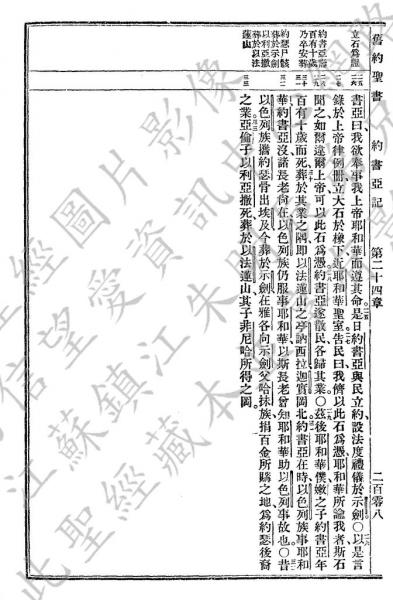 舊約聖書 約書亞記 第二十四章 二百零八
立石爲證
約書亞壽
百有十歲
乃卒安葬
約瑟尸骸
葬於示劍
以利亞撒
葬於以法
蓮山
書亞曰我欲奉事我上帝耶和華而遵其命是日約書亞與民立約設法度禮儀於示劍〇以是言
錄於上帝律例冊立大石於橡下近耶和華聖室告民曰我儕以此石爲憑耶和華所諭我者斯石
聞之如爾違爾上帝可以此石爲憑約書亞遂散民各歸其業〇茲後耶和華僕嫩之子約書亞年
百有十歲而死葬於其業之隅即以法蓮山之亭訥西拉迦實岡北約書亞在時以色列族事耶和
華約書亞沒諸長老尚在以色列族仍服事耶和華以斯長老曾知耶和華助以色列事故也〇昔
以色列族攜約瑟骨出埃及今葬於示劍在雅各向示劍父哈抹族捐百金所購之地爲約瑟後裔
之業亞倫子以利亞撒死葬於以法蓮山其子非尼哈所得之岡